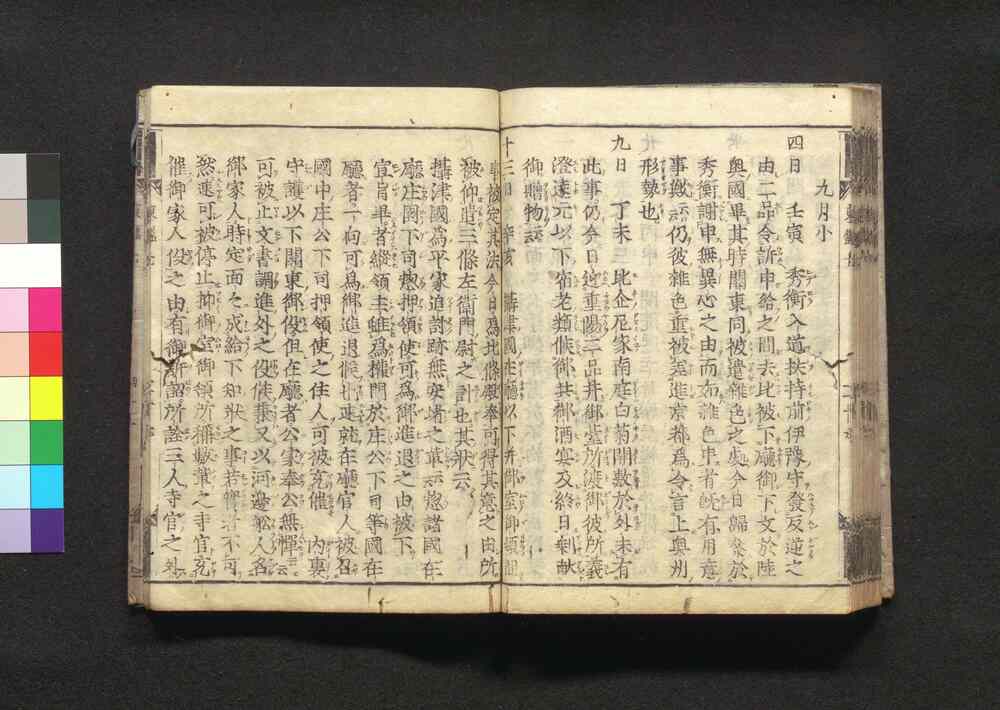 九月小
四日 壬寅 秀衡入道扶持前伊豫守發反逆之
由二品令訴申給之間去比被下廳御下文於陸
奥國畢其時關東同被遣雜色之處今日歸參於
秀衡謝申無異心之由而如雜色申者既有用意
事歟云云仍彼雜色重被差進京都為令言上奥州
形勢也
九日 丁未 比企尼家南庭白菊開敷於外未有
此事仍今日迎重陽二品并御臺所渡御彼所義
澄遠元以下宿老類候御共御酒宴及終日剰献
御贈物云云
十三日 辛亥 攝津國在廳以下并御室御領間
事被定其法今日為北條殿奉可得其意之由所
被仰遣三條左衛門尉之許也其狀云
攝津國為平家追討跡無安堵之輩云云惣諸國在
廳庄園下司惣押領使可為御進退之由被下
宣旨畢者縱領主雖為權門於庄公下司等國在
廳者一向可為御進退候也速就在廳官人被召
國中庄公下司押領使之注人可被宛催 内裏
守護以下關東御役但在廳者公家奉公無憚云云
可被止文書調進外之役候兼又以河邊船人名
御家人時定面々成給下知狀之事若實者不可
然速可被停止抑御室御領所稱數輩之寺官宛
催御家人役之由有御訴詔所詮三人寺官之外